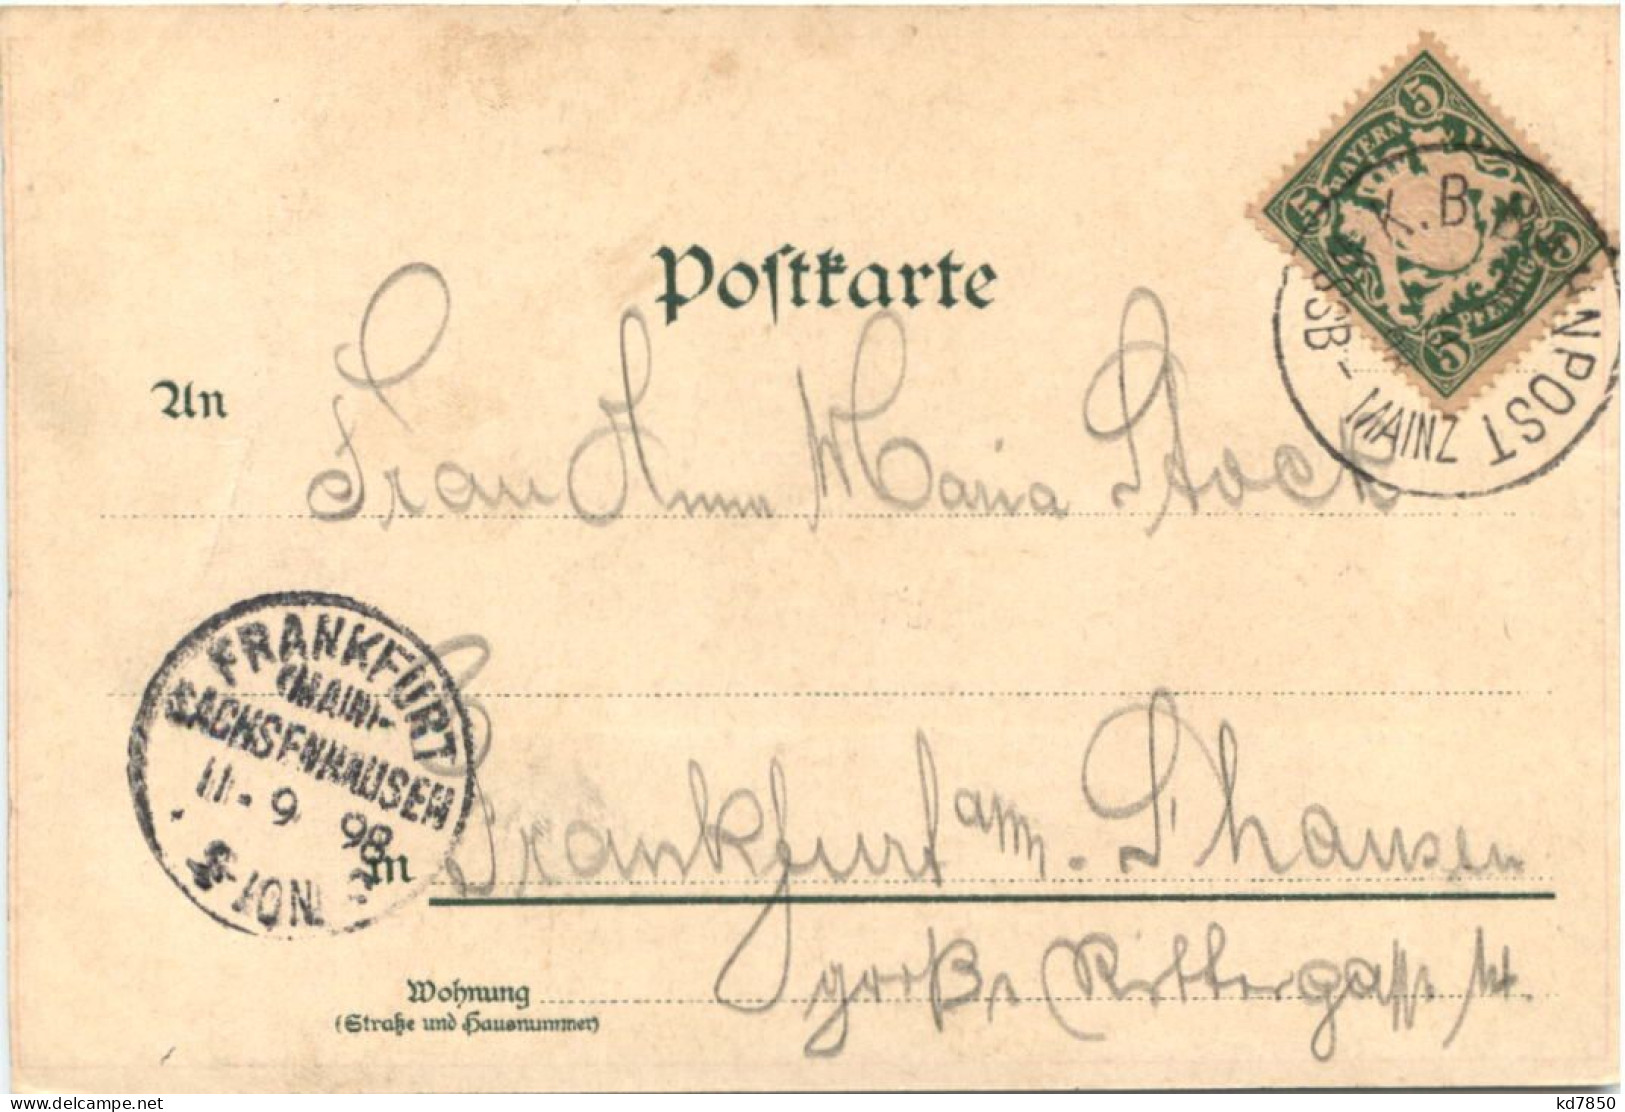 Postkarte
BAYERN
5 5 5 5
PFENNIG
K.B.B NPOST
SB-MAINZ
An Frau Anna Maria Stock
FRANKFURT
(MAIN)-
SACHSENHAUSEN
11-9 98
-10N
in Frankfurt am. S'hausen
Wohnung große Rittergasse
(Straße und Hausnummer)
delcampe.net
kd7850